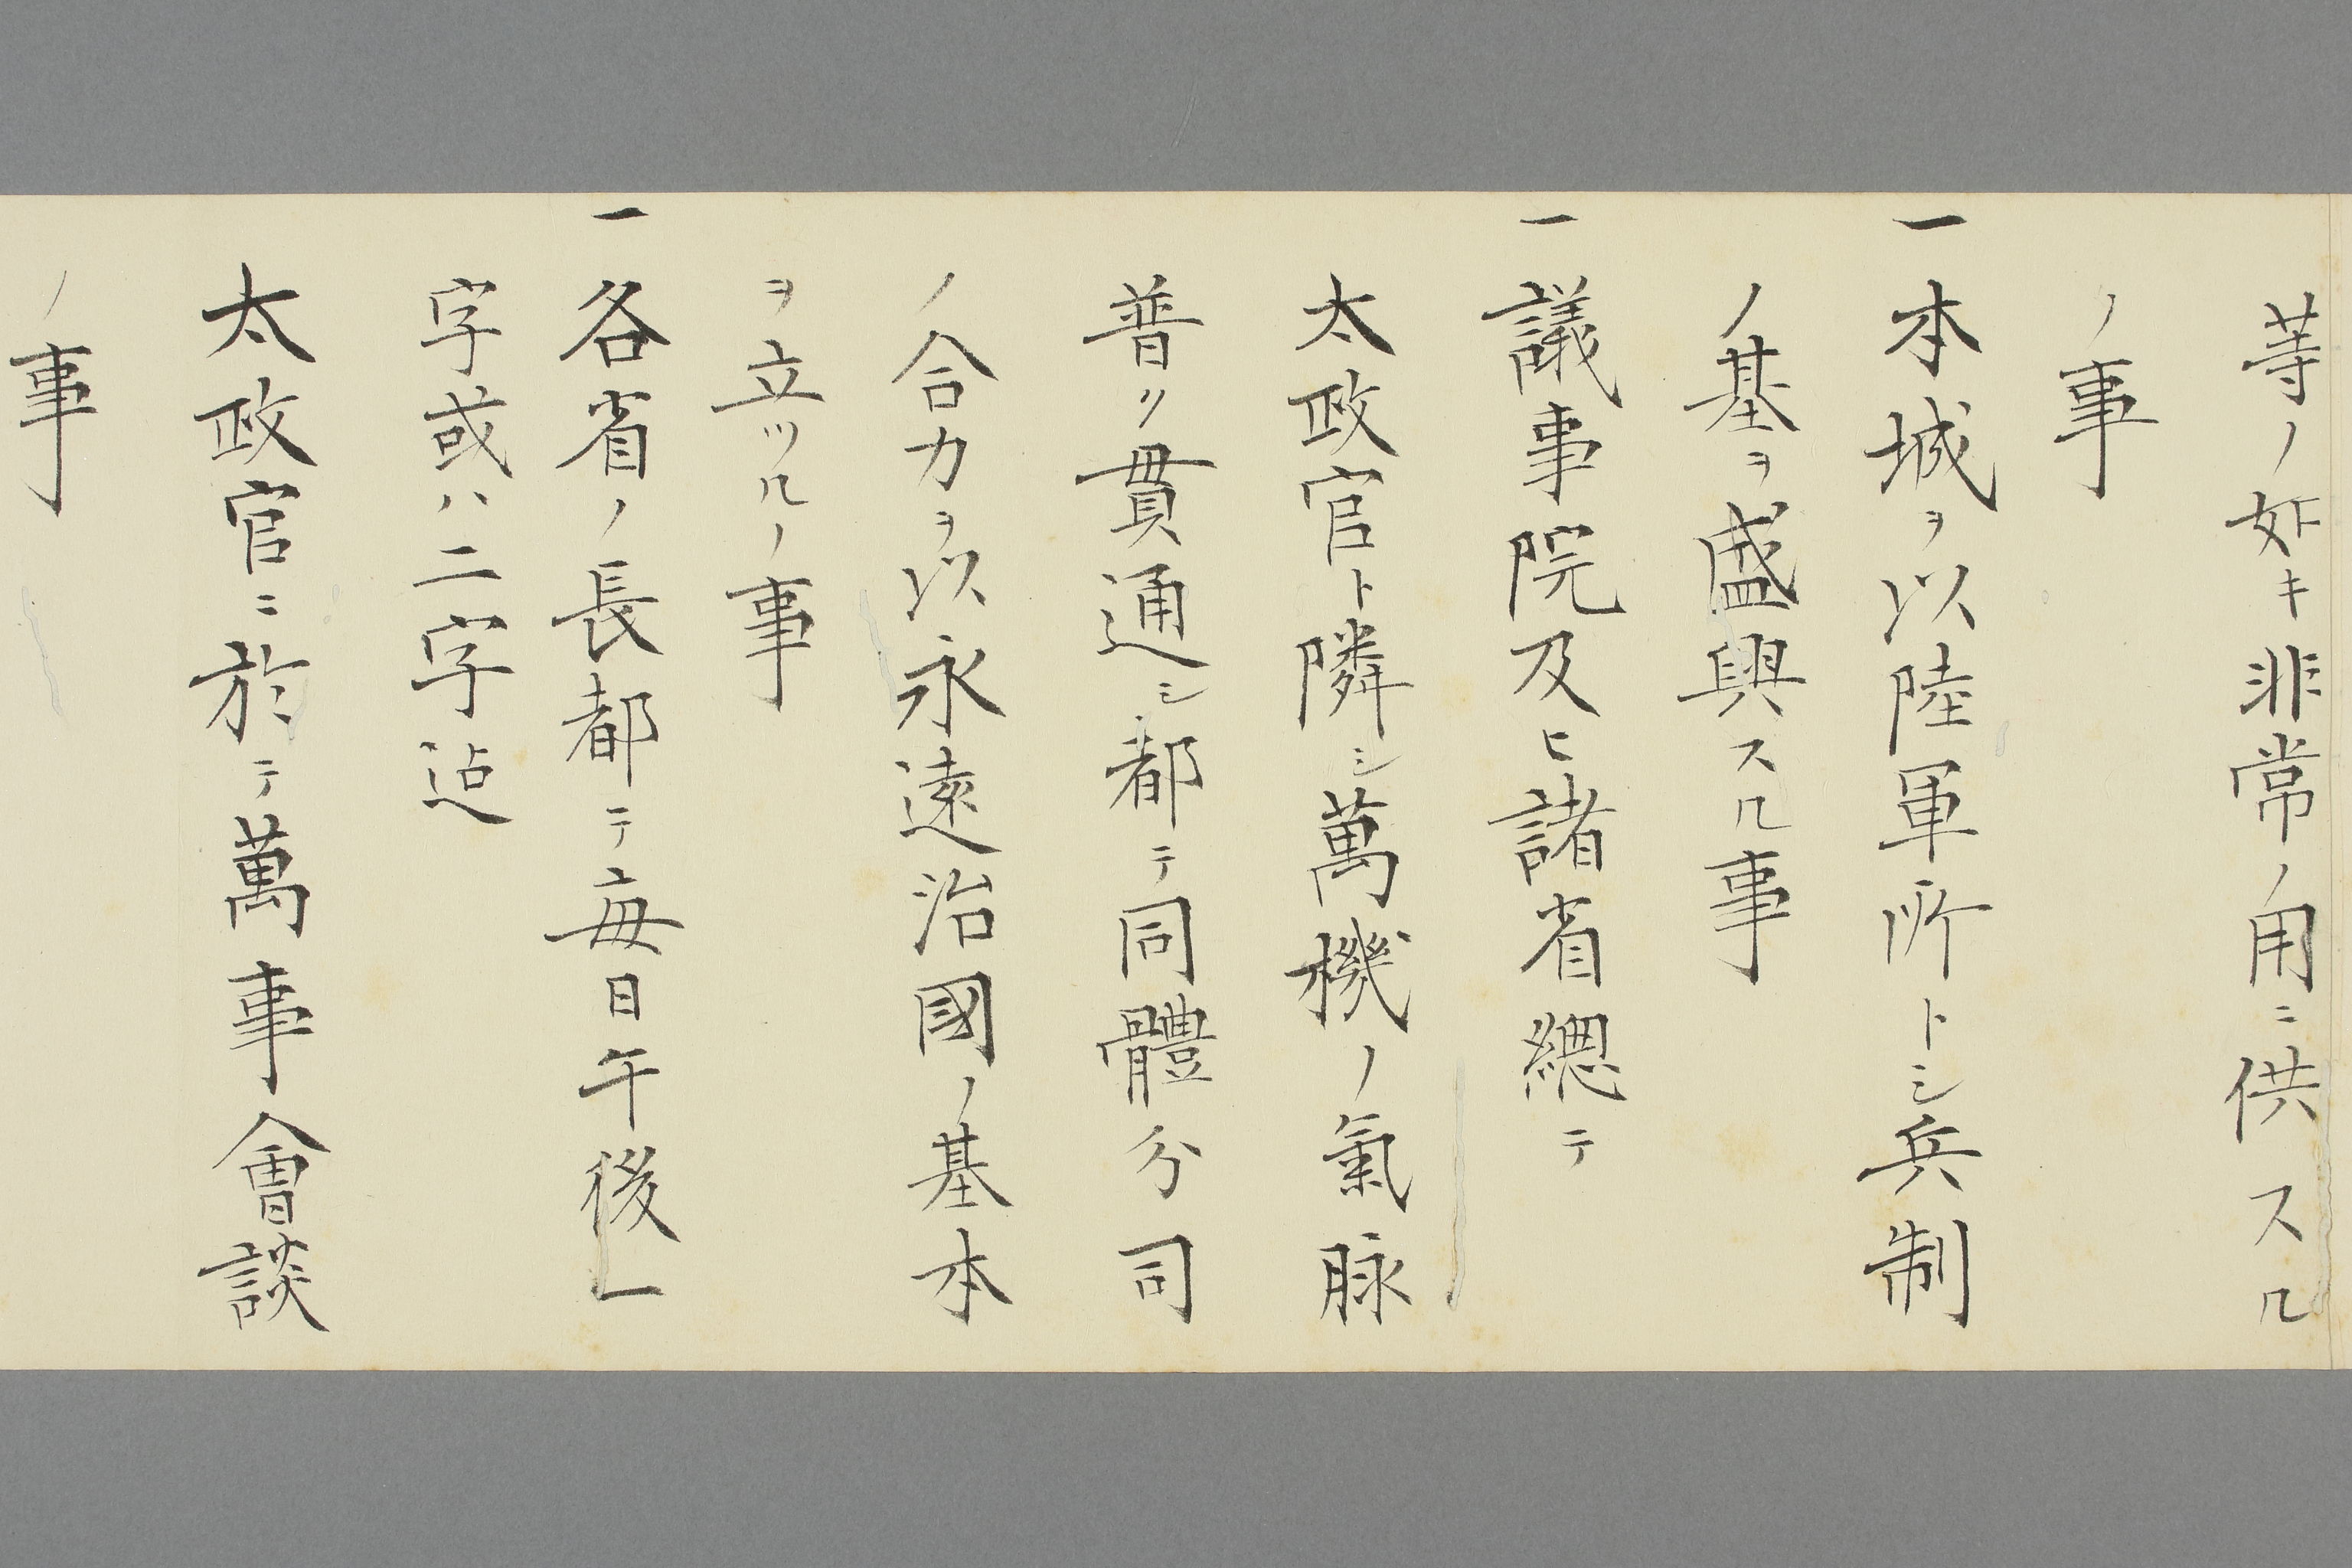 等ノ如キ非常ノ用ニ供スル
ノ事
一本城ヲ以陸軍所トシ兵制
ノ基ヲ盛興スル事
一議事院及ヒ諸省總テ
太政官ト隣シ萬機ノ氣脉
普ク貫通シ都テ同體分司
ノ合力ヲ以永遠治國ノ基本
ヲ立ツルノ事
一各省ノ長都テ毎日午後一
字或ハ二字迠
太政官ニ於テ萬事會談
ノ事